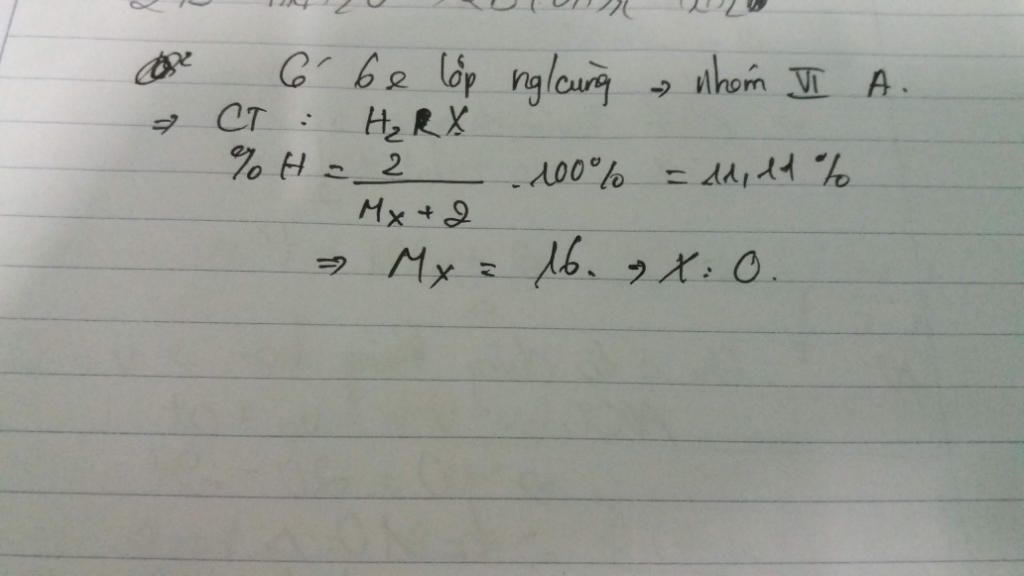 Có 6e lớp ng/cùng → nhóm VI A.
⇒ CT : H₂X
%H = 2 / (Mx + 2) . 100% = 11,11 %
⇒ Mx = 16. → X : O.